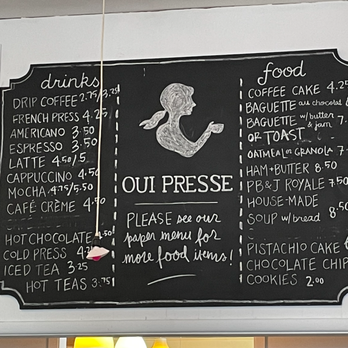 drinks
DRIP COFFEE 2.75/3.25
FRENCH PRESS 4.25
AMERICANO 3.50
ESPRESSO 3.50
LATTE 4.50/5.
CAPPUCCINO 4.50
MOCHA 4.75/5.50
CAFÉ CRÈME 4.50
HOT CHOCOLATE
COLD PRESS
ICED TEA 3.25
HOT TEAS 3.75
OUI PRESSE
PLEASE see our
paper menu for
more food items!
food
COFFEE CAKE 4.25
BAGUETTE au chocolat
BAGUETTE w/ butter & jam 7.
OR TOAST
OATMEAL OR GRANOLA 7.
HAM + BUTTER 8.50
PB & J ROYALE 7.50
HOUSE-MADE
SOUP w/ bread 8.50
PISTACHIO CAKE
CHOCOLATE CHIP
COOKIES 2.00